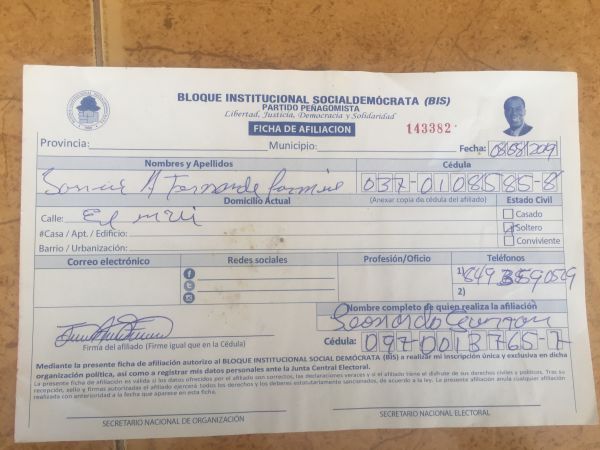 BLOQUE INSTITUCIONAL SOCIALDEMÓCRATA (BIS)
PARTIDO PEÑAGOMISTA
Libertad, Justicia, Democracia y Solidaridad
FICHA DE AFILIACION 143382
Provincia: Municipio: Fecha: 08/08/2019
Nombres y Apellidos Cédula
A 037-0108585-8
Domicilio Actual (Anexar copia de cédula del afiliado) Estado Civil
Calle: Casado
#Casa / Apt. / Edificio: Soltero
Barrio / Urbanización: Conviviente
Correo electrónico Redes sociales Profesión/Oficio Teléfonos
1) 849
2)
Nombre completo de quien realiza la afiliación
Leonardo
Firma del afiliado (Firme igual que en la Cédula) Cédula: 097-0013765-7
Mediante la presente ficha de afiliación autorizo al BLOQUE INSTITUCIONAL SOCIAL DEMÓCRATA (BIS) a realizar mi inscripción única y exclusiva en dicha
organización política, así como a registrar mis datos personales ante la Junta Central Electoral.
La presente ficha de afiliación es válida si los datos ofrecidos por el afiliado son correctos, las declaraciones veraces y si el afiliado tiene el disfrute de sus derechos civiles y políticos. Tras su
recepción, sello y firmas autorizadas el afiliado ejercerá todos los derechos y los deberes estatutariamente sancionados, de acuerdo a la ley. La presente afiliación anula cualquier afiliación
realizada con anterioridad a la fecha que aparece en esta ficha.
SECRETARIO NACIONAL DE ORGANIZACIÓN SECRETARIO NACIONAL ELECTORAL